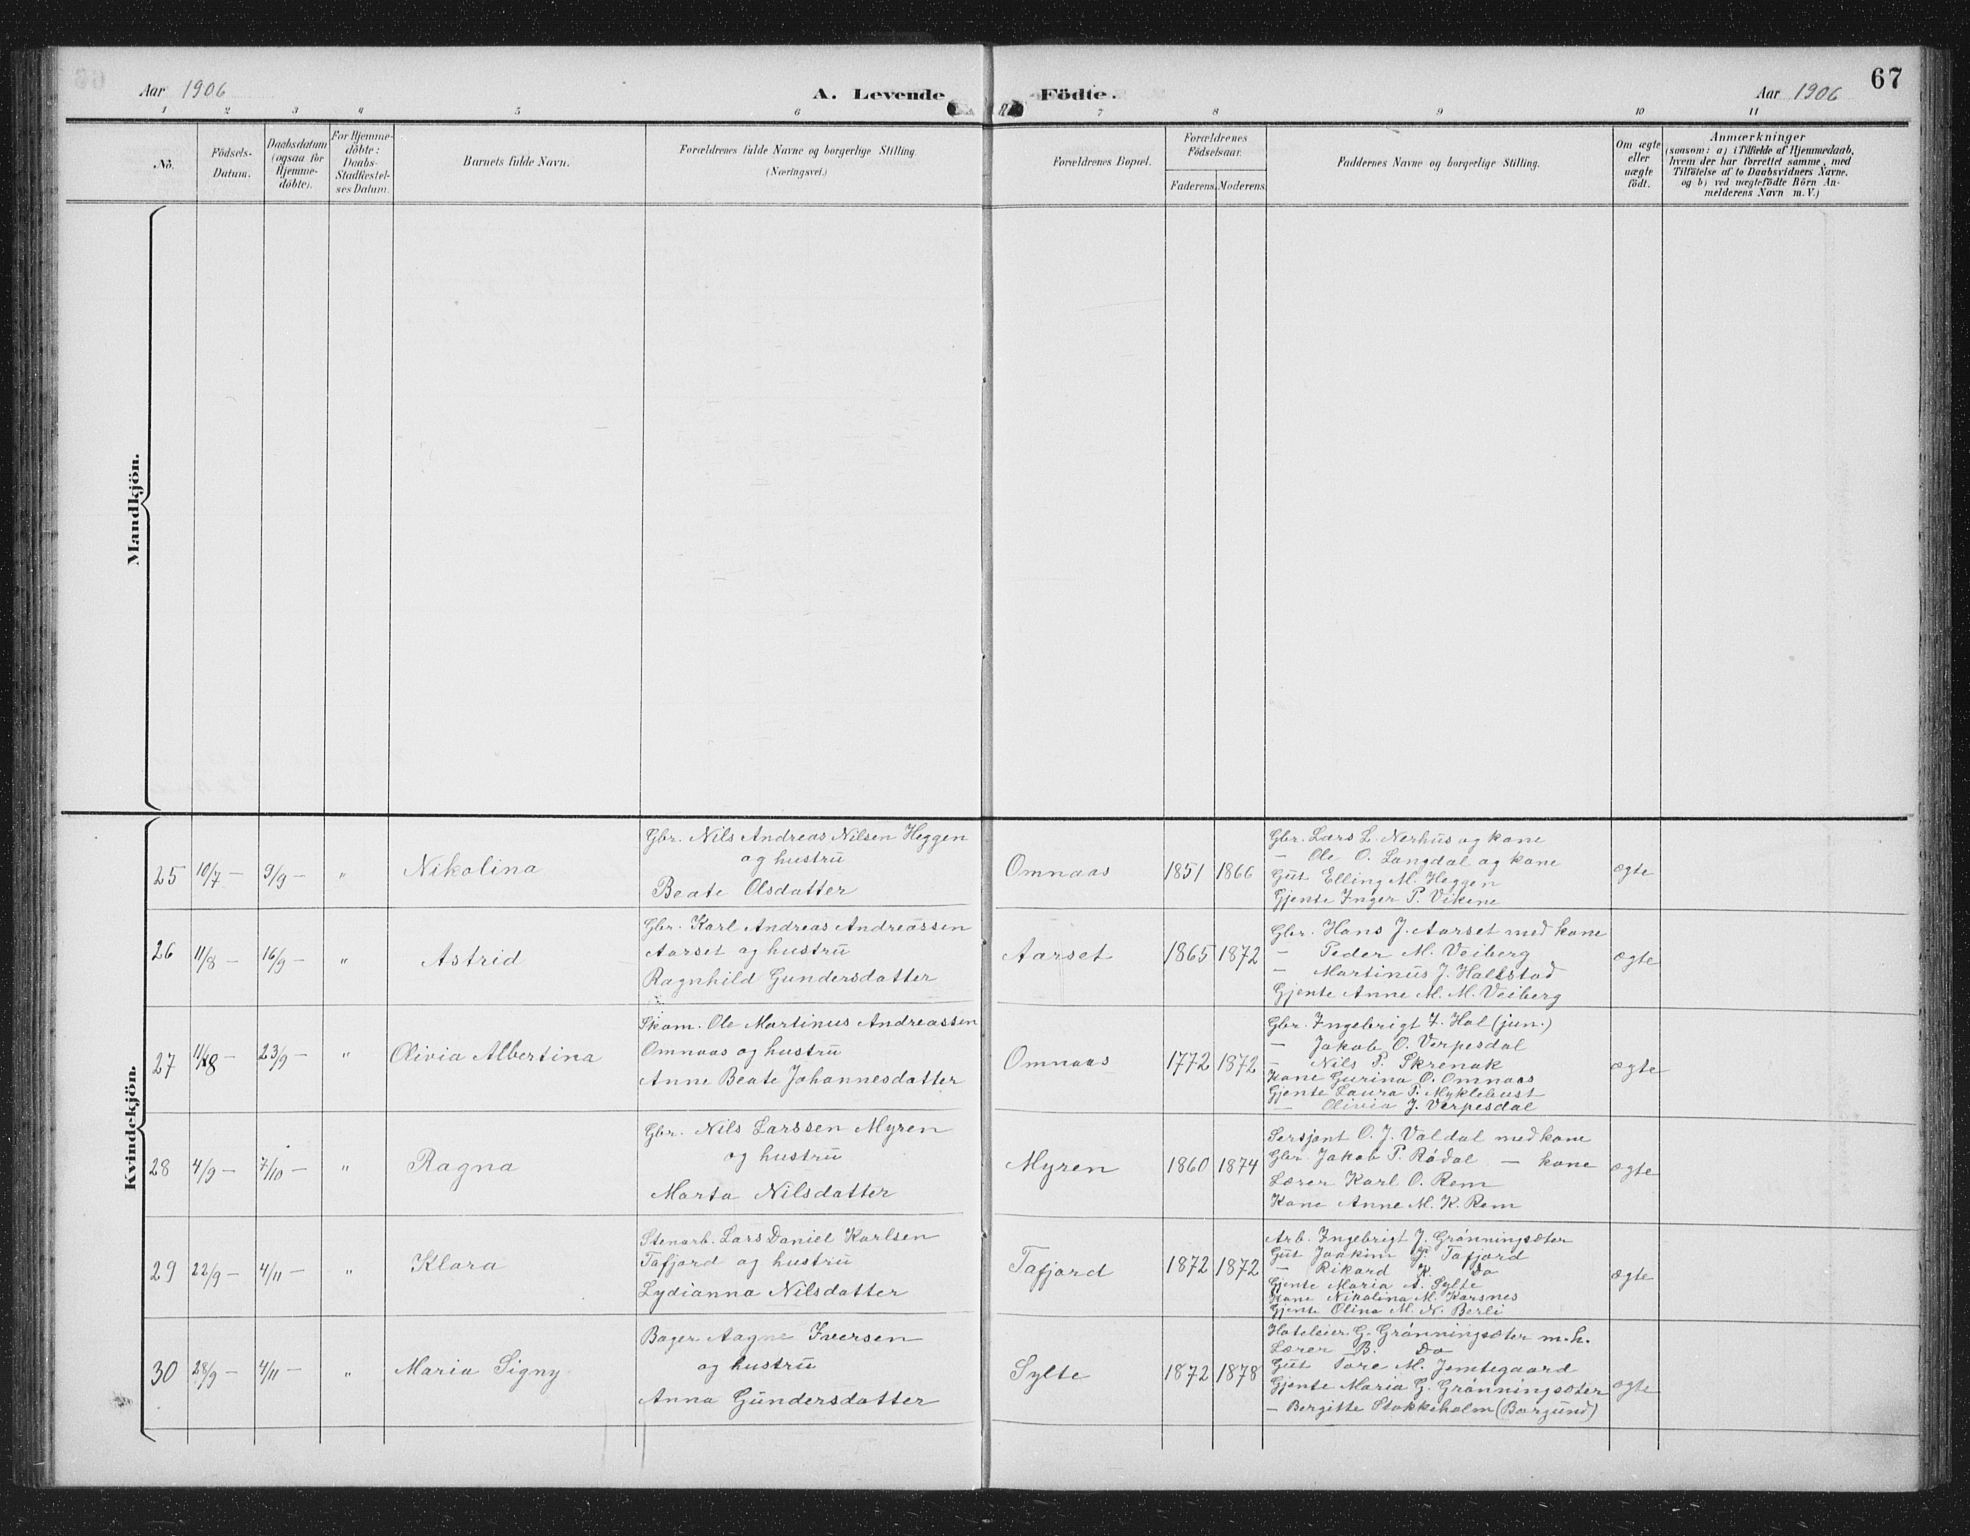 Aar 1906
A. Levende
Födte.
Aar 1906
67
1 2 3 4 5 6 7 8 9 10 11
No.
Födsels-
Datum.
Daabsdatum
(ogsaa for
Hjemme-
döbte).
For Hjemme-
döbte:
Daabs-
Stadfæstel-
ses Datum.
Barnets fulde Navn.
Forældrenes fulde Navne og borgerlige Stilling
(Næringsvei.)
Forældrenes Bopæl.
Forældrenes
Födselsaar.
Faderens. Moderens.
Faddernes Navne og borgerlige Stilling.
Om ægte
eller
uægte
födt.
Anmærkninger
(saasom: a) i Tilfælde af Hjemmedaab,
hvem der har forrettet samme, med
Tilföielse af to Daabsvidners Navne,
og b) ved uægtefödte Börn An-
melderens Navn m. V.)
Mandkjön.
Kvindekjön.
25 10/7 – 9/9 – " Nikolina
Gbr. Nils Andreas Nilsen Heggen
og hustru
Beate Olsdatter
Omnaas 1851 1866
Gbr. Lars L. Nerhus og kone
– Ole O. Langdal og kone
Gut Elling M. Heggen
Gjente Inger P. Vikene
ægte
26 11/8 – 16/9 – " Astrid
Gbr. Karl Andreas Andreassen
Aarset og hustru
Ragnhild Gundersdatter
Aarset 1865 1872
Gbr. Hans J. Aarset med kone
– Peder M. Veiberg
– Martinus J. Hallstad
Gjente Anne M. M. Veiberg
ægte
27 11/8 – 23/9 – " Olivia Albertina
Skom. Ole Martinus Andreassen
Omnaas og hustru
Anne Beate Johannesdatter
Omnaas 1772 1872
Gbr. Ingebrigt I. Hol (jun.)
– Jakob O. Verpesdal
– Nils P. Skrenak
Kone Gurina O. Omnaas
Gjente Laura P. Myklebust
– Olivia J. Verpesdal
ægte
28 4/9 – 7/10 – " Ragna
Gbr. Nils Larssen Myren
og hustru
Marta Nilsdatter
Myren 1860 1874
Sersjant O. J. Valdal med kone
Gbr. Jakob P. Rødal – kone
Lærer Karl O. Rem
Kone Anne M. K. Rem
ægte
29 22/9 – 4/11 – " Klara
Stenarb. Lars Daniel Karlsen
Tafjord og hustru
Lydianna Nilsdatter
Tafjord 1872 1872
Arb. Ingebrigt J. Grønningsæter
Gut Joakim P. Tafjord
– Rikard K. Do
Gjente Maria A. Sylte
Kone Nikolina M. Korsnes
Gjente Olina M. N. Berli
ægte
30 28/9 – 4/11 – " Maria Signy
Bager Aagne Iversen
og hustru
Anna Gundersdatter
Sylte 1872 1878
Hoteleier G. Grønningsæter m. h.
Lærer B. Do
Gut Tore M. Jemtegaard
Gjente Maria G. Grønningsæter
– Bergitte Stokkeholm (Borgund)
ægte